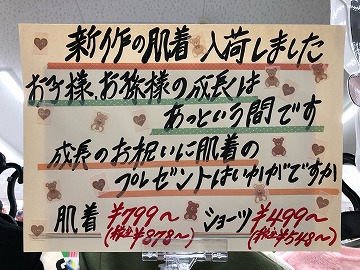 新作の肌着 入荷しました
お子様、お孫様の成長は
あっという間です
成長のお祝いに肌着の
プレゼントはいかがですか
肌着 ¥799～ ショーツ ¥499～
(税込¥878～) (税込¥548～)